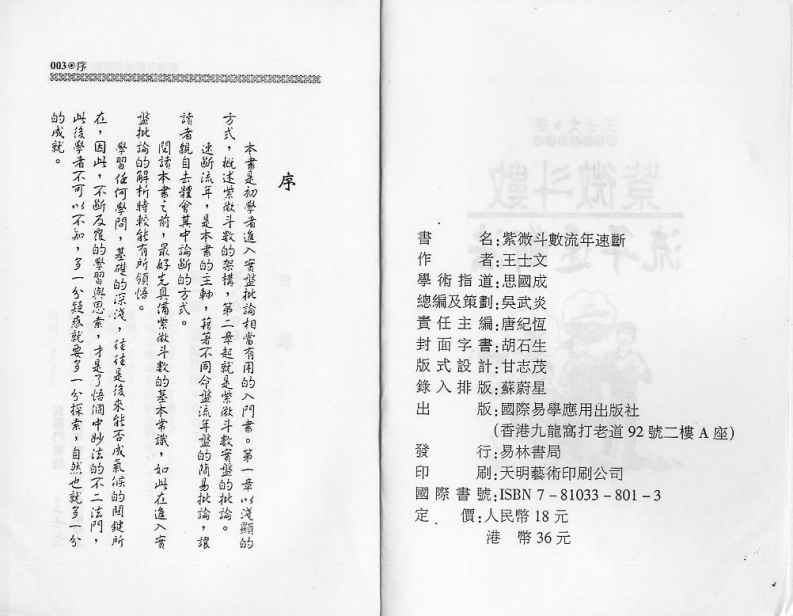 書名:紫微斗數流年速斷
作者:王士文
學術指道:思國成
總編及策劃:吳武炎
責任主編:唐紀恆
封面字書:胡石生
版式設計:甘志茂
錄入排版:蘇蔚星
出版:國際易學應用出版社
(香港九龍窩打老道92號二樓A座)
發行:易林書局
印刷:天明藝術印刷公司
國際書號:ISBN 7-81033-801-3
定價:人民幣18元
港幣36元
003◉序
序
本書是初學者進入實盤批論相當有用的入門書。第一章以淺顯的
方式，概述紫微斗數的架構，第二章起就是紫微斗數實盤的批論。
速斷流年，是本書的主軸，藉著不同命盤流年盤的簡易批論，讓
讀者親自去體會其中論斷的方式。
閱讀本書之前，最好先具備紫微斗數的基本常識，如此在進入實
盤批論的解析時較能有所領悟。
學習任何學問，基礎的深淺，往往是後來能否成氣候的關鍵所
在，因此，不斷反覆的學習與思索，才是了悟個中妙法的不二法門，
此後學者不可以不知，多一分疑惑就要多一分探索，自然也就多一分
的成就。